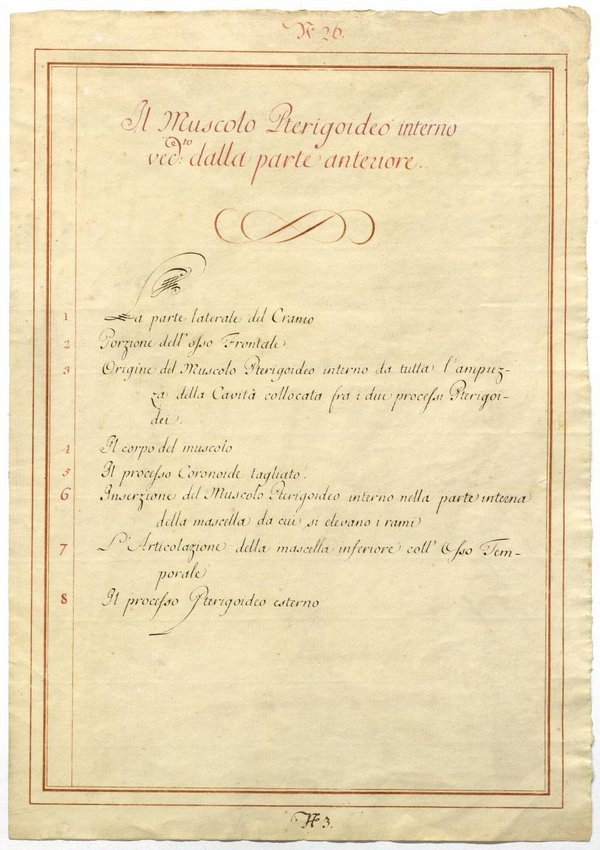 N. 26.
Il Muscolo Pterigoideo interno
ved:to dalla parte anteriore.
1 La parte laterale del Cranio
2 Porzione dell'osso Frontale
3 Origine del Muscolo Pterigoideo interno da tutta l'ampiez-
za della Cavità collocata fra i due processi Pterigoi-
dei.
4 Il corpo del muscolo
5 Il processo Coronoide tagliato.
6 Inserzione del Muscolo Pterigoideo interno nella parte interna
della mascella da cui si elevano i rami
7 L'Articolazione della mascella inferiore coll'Osso Tem-
porale
8 Il processo Pterigoideo esterno
N. 3.